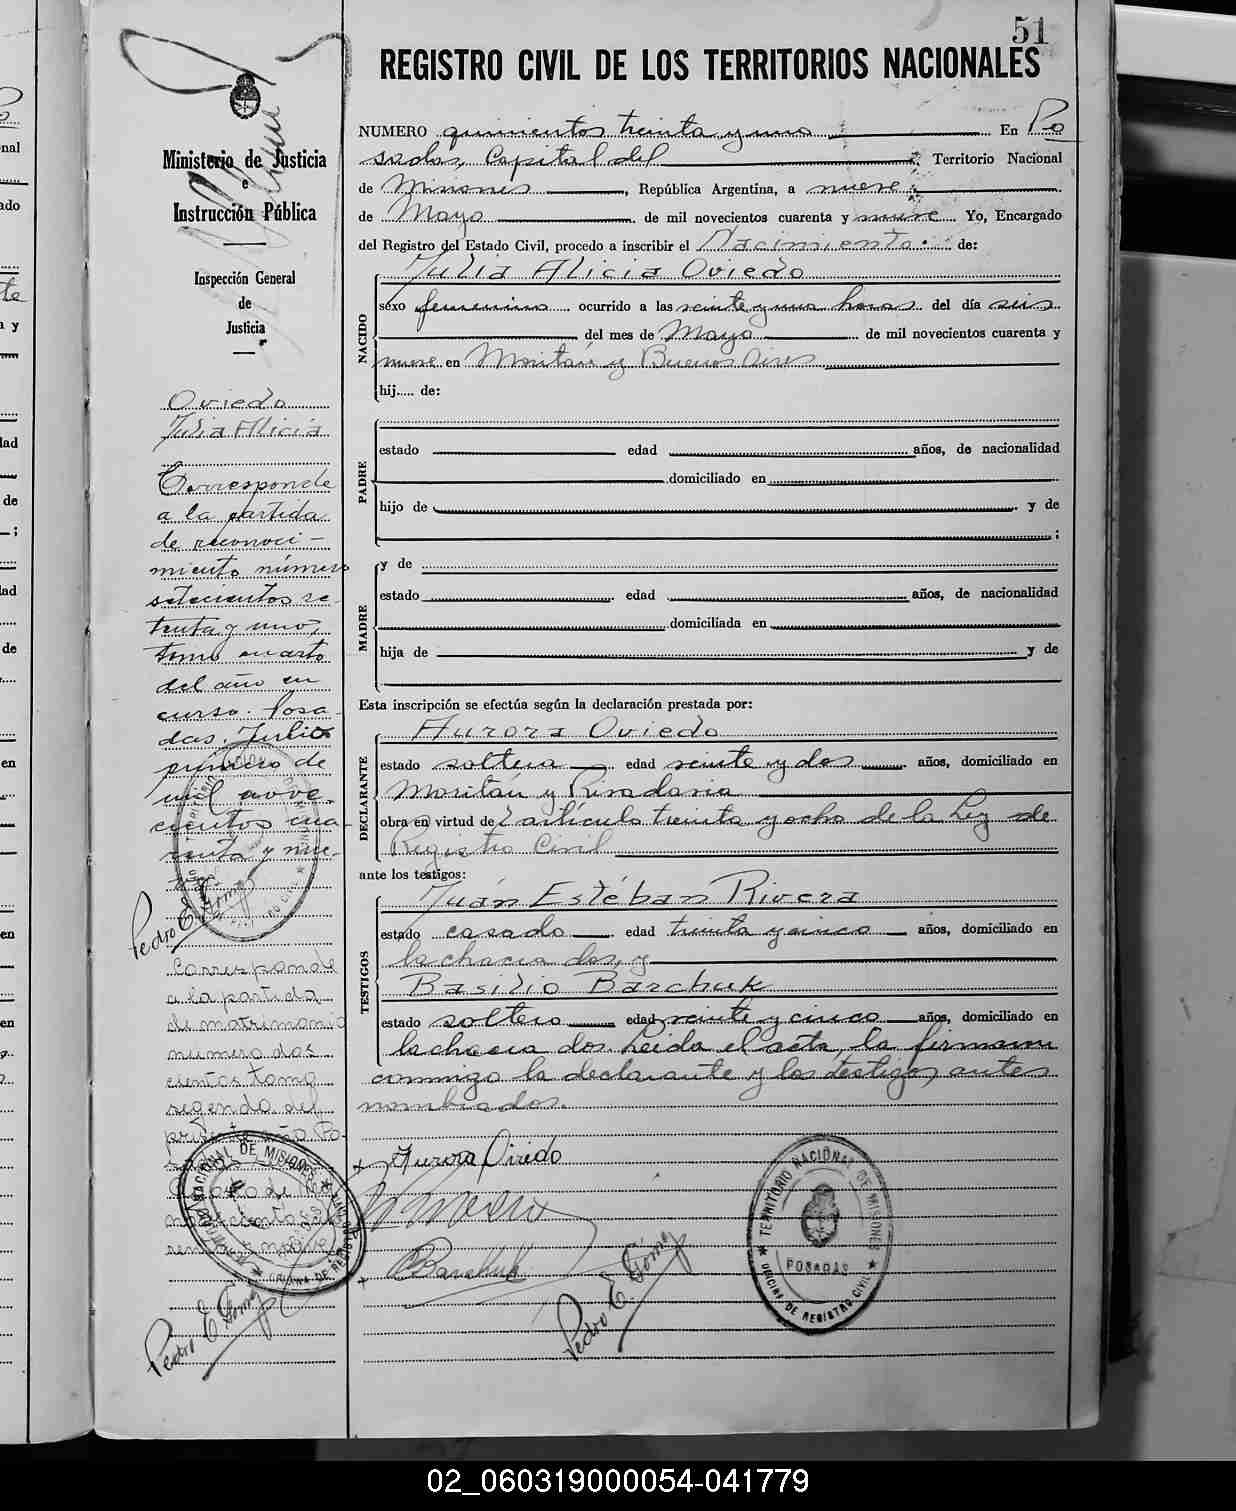 51
REGISTRO CIVIL DE LOS TERRITORIOS NACIONALES
Ministerio de Justicia
e
Instrucción Pública
Inspección General
de
Justicia
NUMERO quinientos treinta y uno En Po
sadas, Capital del Territorio Nacional
de Misiones, República Argentina, a nueve
de Mayo de mil novecientos cuarenta y nueve Yo, Encargado
del Registro del Estado Civil, procedo a inscribir el Nacimiento de:
NACIDO
Julia Alicia Oviedo
sexo femenino ocurrido a las veinte y una horas del día seis
del mes de Mayo de mil novecientos cuarenta y
nueve en Moritán y Buenos Aires
hij..... de:
PADRE
estado edad años, de nacionalidad
domiciliado en
hijo de y de
;
MADRE
y de
estado edad años, de nacionalidad
domiciliada en
hija de y de
Esta inscripción se efectúa según la declaración prestada por:
DECLARANTE
Aurora Oviedo
estado soltera edad veinte y dos años, domiciliado en
Moritán y Rivadavia
obra en virtud del artículo treinta y ocho de la Ley de
Registro Civil
ante los testigos:
TESTIGOS
Juán Estéban Rivera
estado casado edad treinta y cinco años, domiciliado en
la chacra dos, y
Basilio Barchuk
estado soltero edad veinte y cinco años, domiciliado en
la chacra dos. Leida el acta, la firman
conmigo la declarante y los testigos antes
nombrados.
Aurora Oviedo
Barchuk
Pedro E. Gómez
TERRITORIO NACIONAL DE MISIONES
POSADAS
OFICINA DE REGISTRO CIVIL
Oviedo
Julia Alicia
Corresponde
a la partida
de reconoci-
miento número
setecientos se
tenta y uno,
tomo cuarto
del año en
curso. Posa-
das, Julio
primero de
mil nove
cientos cua-
renta y nue-
ve.
Pedro E. Gómez
Corresponde
a la partida
de matrimonio
numero dos
cientos tomo
segundo del
Po-
NACIONAL DE MISIONES
OFICINA DE REGISTRO
Pedro E. Gómez
02_060319000054-041779